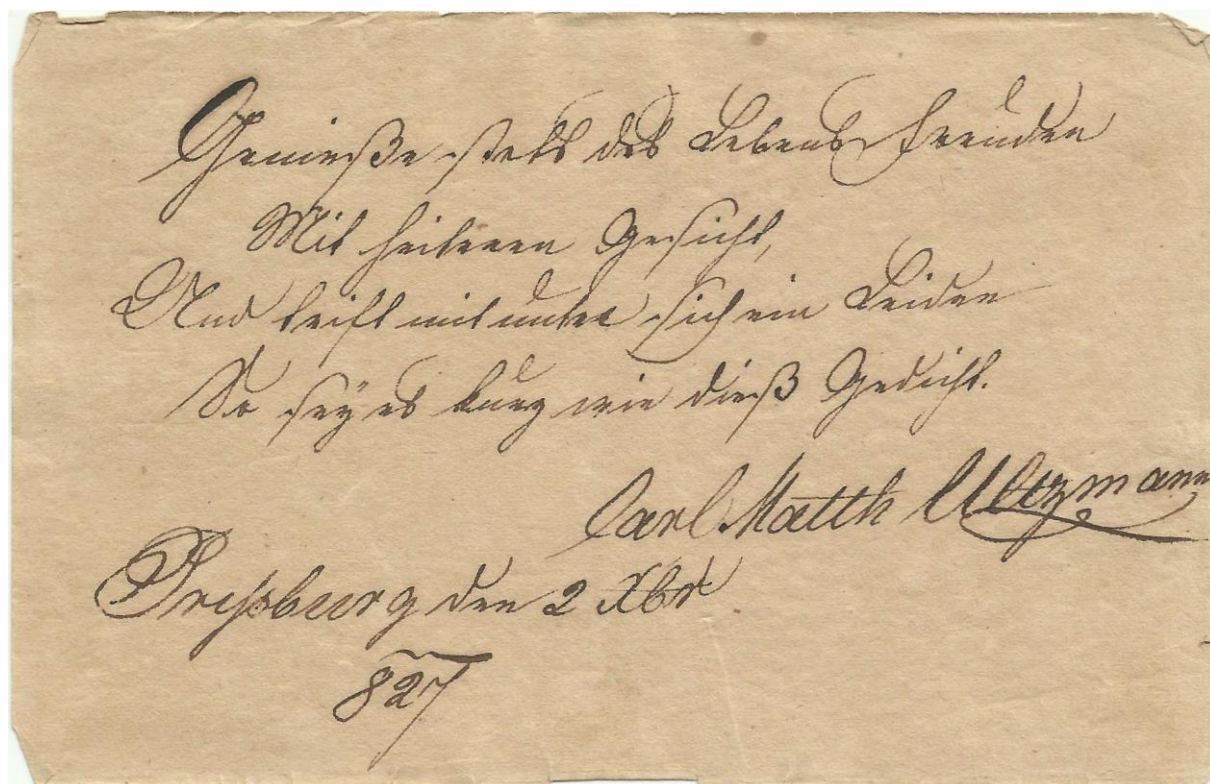 Genieße stets des Lebens Freuden
Mit heiteren Gesicht,
Und trift mit unter sich ein Leiden
So seÿ es kurz wie dieß Gedicht.
Carl Matth
Preßburg den 2 Xbr
827